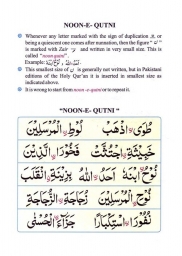 NOON-E- QUTNI
Whenever any letter marked with the sign of duplication or
being a quiescent one comes after nunnation, then the figure "
is marked with Zair and written in very small size. This is
called "noon-qutni".
EXAMPLE:
This smallest size of is generally not written, but in Pakistani
editions of the Holy Qur'an it is inserted in smallest size as
indicated above.
It is wrong to start from noon-e-qutni or to repeat it.
"NOON-E- QUTNI "
طُوًى اذْهَبْ لُوْطِ الْمُرْسَلِيْنَ
خَبِيْثَةِ اجْتُثَّتْ فَخُوْرَا الَّذِيْنَ
نُوْحُ ابْنَهٗ اَحَدُ اللّٰهُ بِزِيْنَةِ الْكَوَاكِبِ
نُوْحِ الْمُرْسَلِيْنَ زُجَاجَةٍ الزُّجَاجَةُ
نُفُوْرَا اسْتِكْبَارًا جَزَآءَ الْحُسْنٰى